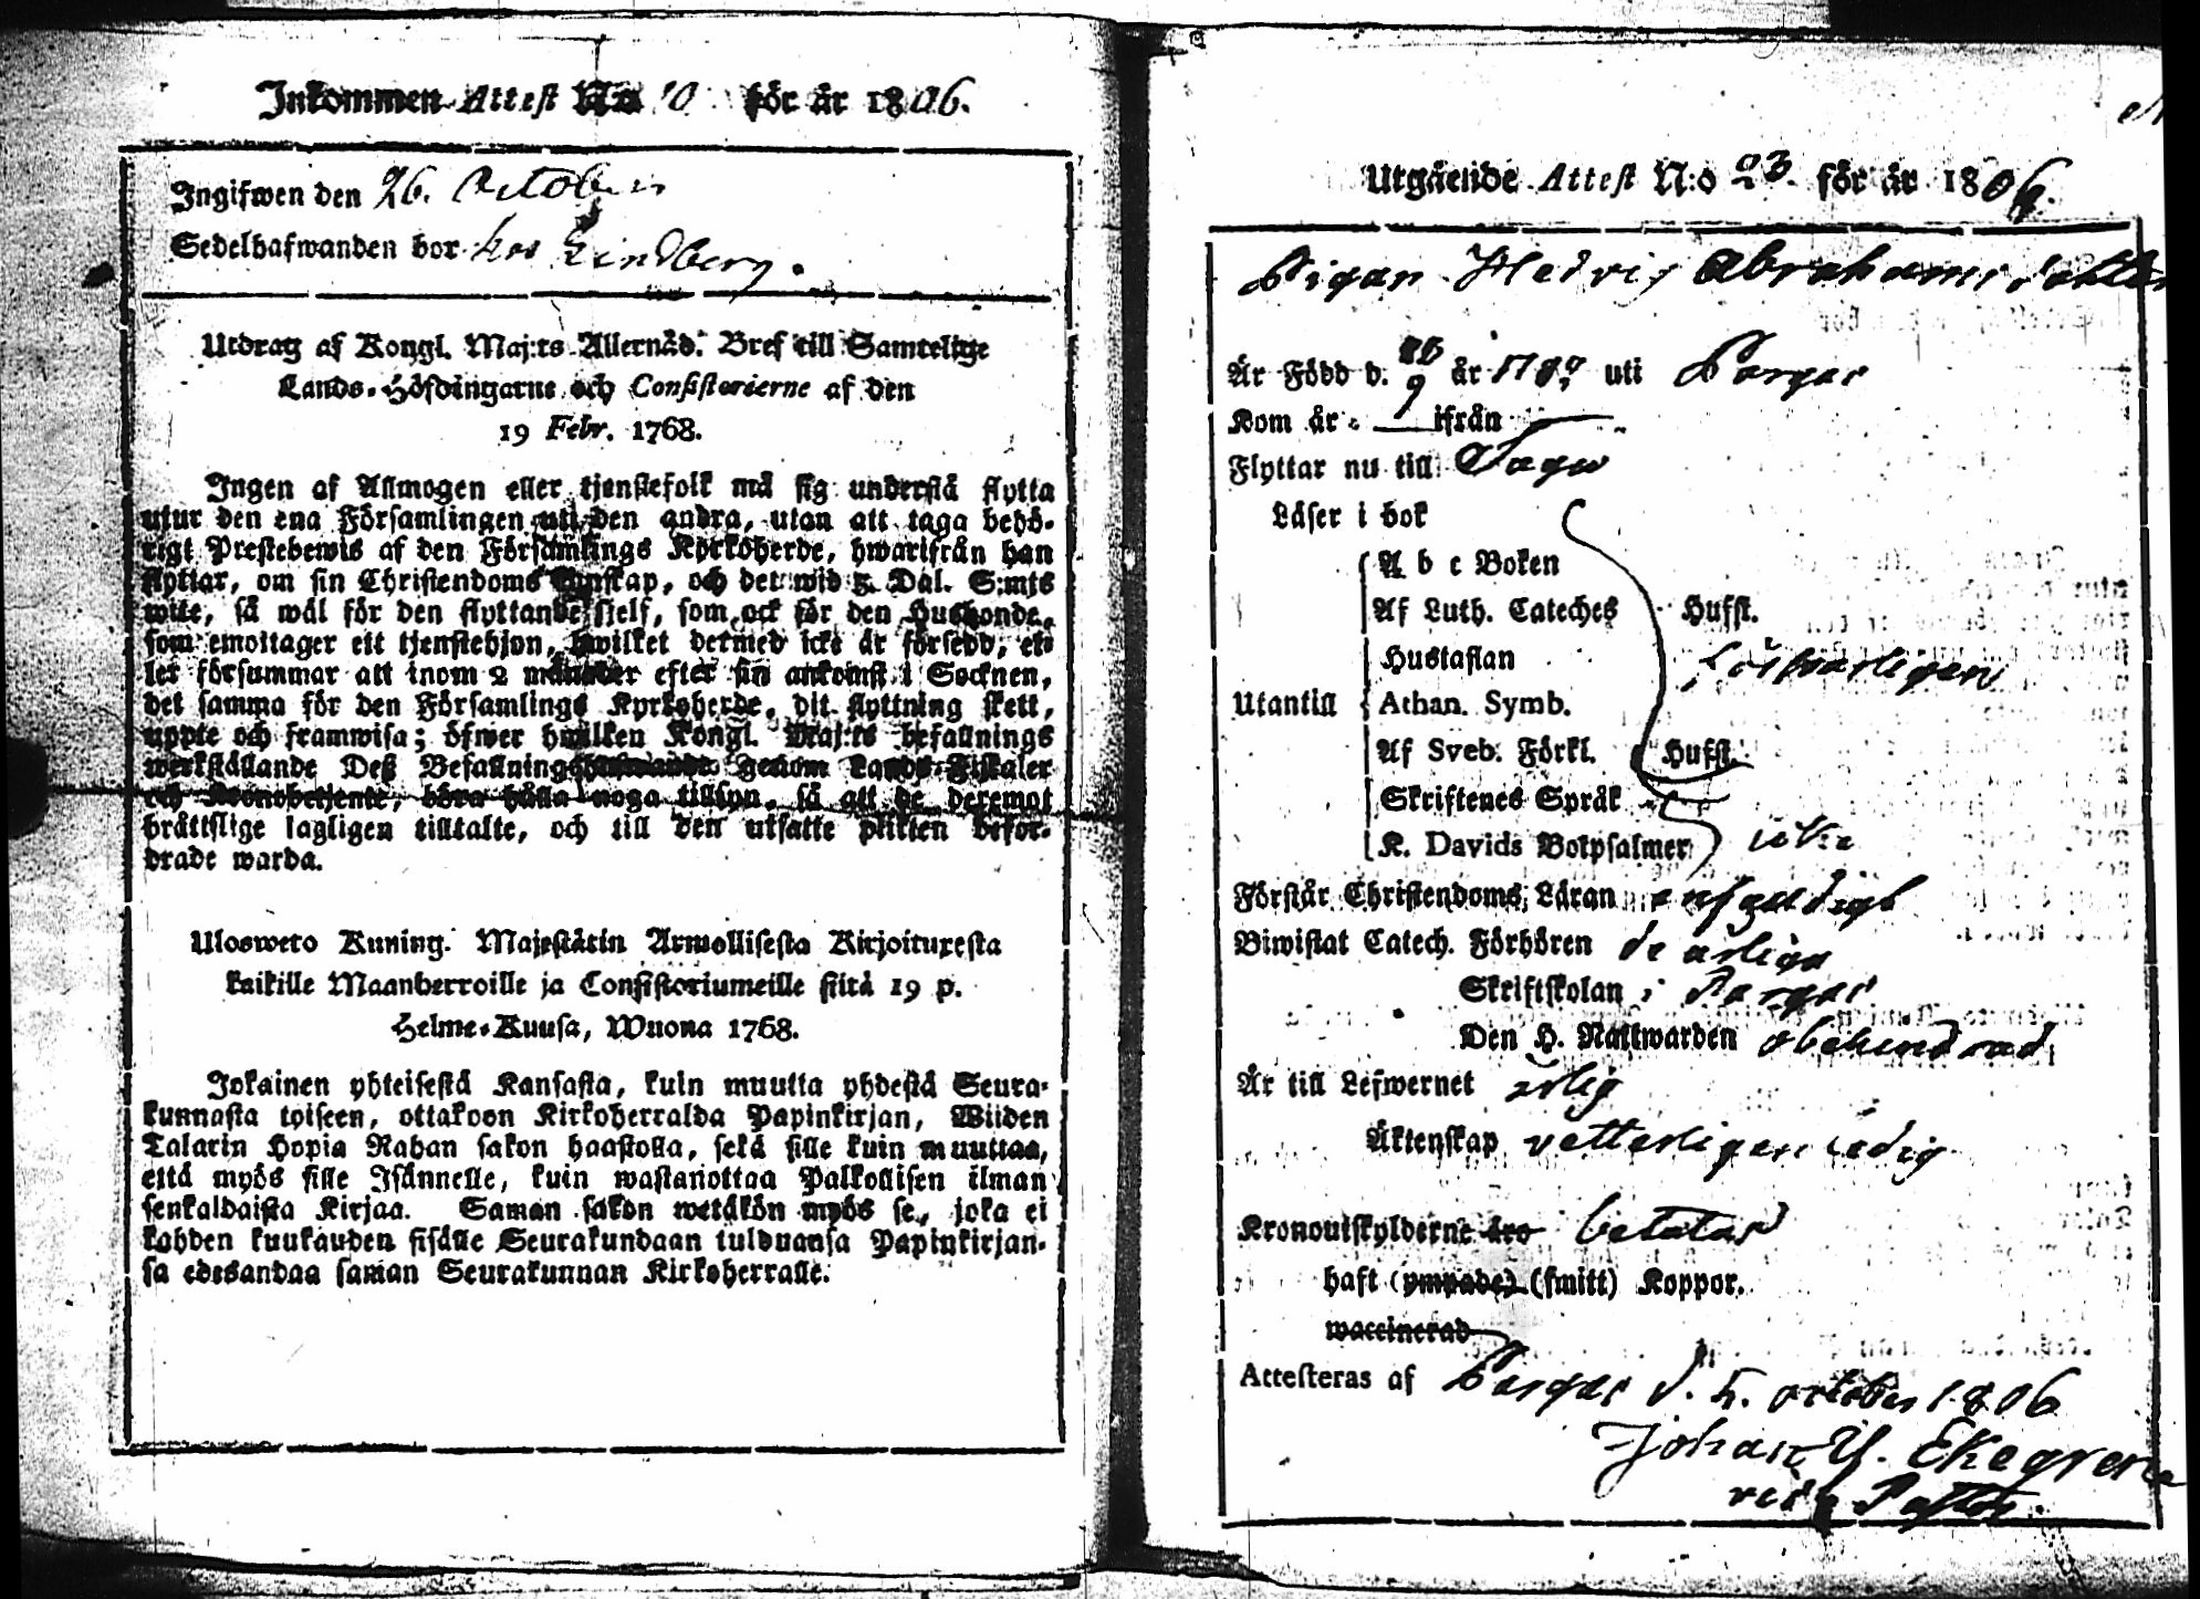 Inkommen Attest No 10 för år 1806.
Ingifwen den 26. October
Sedelhafwanden bor hos Lindberg.
Utdrag af Kongl. Maj:ts Allernåd. Bref till Samtelige
Lands-Höfdingarne och Consistorierne af den
19 Febr. 1768.
Ingen af Allmogen eller tjenstefolk må sig understå flytta
utur den ena Församlingen uti den andra, utan att taga behö-
rigt Prestebewis af den Församlings Kyrkoherde, hwarifrån han
flyttar, om sin Christendoms kunskap, och det wid 5 Dal. S:mts
wite, så wäl för den flyttande sjelf, som ock för den Husbonde,
som emottager ett tjenstehjon, hwilket dermed icke är försedd, el-
ler försummar att inom 2 månader efter sin ankomst i Socknen,
det samma för den Församlings Kyrkoherde, dit flyttning skett,
uppte och framwisa; öfwer hwilken Kongl. Maj:ts befallnings
werkställande Deß Befallningshafwande genom Lands-Fiskaler
och Kronobetjente, böra hålla noga tillsyn, så att de deremot
bråttslige lagligen tilltalte, och till den utsatte plikten befor-
drade warda.
Ulosweto Kuning. Majestätin Armollisesta Kirjoituxesta
kaikille Maanherroille ja Consistoriumeille siitä 19 p.
Helme-Kuusa, Wuona 1768.
Jokainen yhteisestä Kansasta, kuin muutta yhdestä Seura-
kunnasta toiseen, ottakoon Kirkoherralda Papinkirjan, Wiiden
Talarin Hopia Rahan sakon haastolla, sekä sille kuin muuttaa,
että myös sille Isännelle, kuin wastanottaa Palkollisen ilman
senkaldaista Kirjaa. Saman sakon wetäkön myös se, joka ei
kahden kuukauden sisälle Seurakundaan tulduansa Papinkirjan-
sa edesandaa saman Seurakunnan Kirkoherralle.
Utgående Attest N:o 23. för år 1806.
Pigan Hedvig Abrahams dotter
Är Född d. 26/9 år 178 uti Pargas
Kom år — ifrån —
Flyttar nu till Pagu
Läser i bok
A b c Boken
Af Luth. Cateches Hufst.
Hustaflan försvarligen
Utantill Athan. Symb.
Af Sveb. Förkl. Hufst.
Skriftenes Språk
K. Davids Botpsalmer icke
Förstår Christendoms Läran enfaldigt
Biwistat Catech. Förhören de årliga
Skriftskolan i Pargas
Den H. Nattwarden obehindrad
Är till Lefwernet ärlig
Äktenskap vetterligen ledig
Kronoutskylderne äro betalas
haft (ympade) (smitt) Koppor.
waccinerad
Attesteras af Pargas d. 5. october 1806
Johan U. Ekegren
vice Pastor.